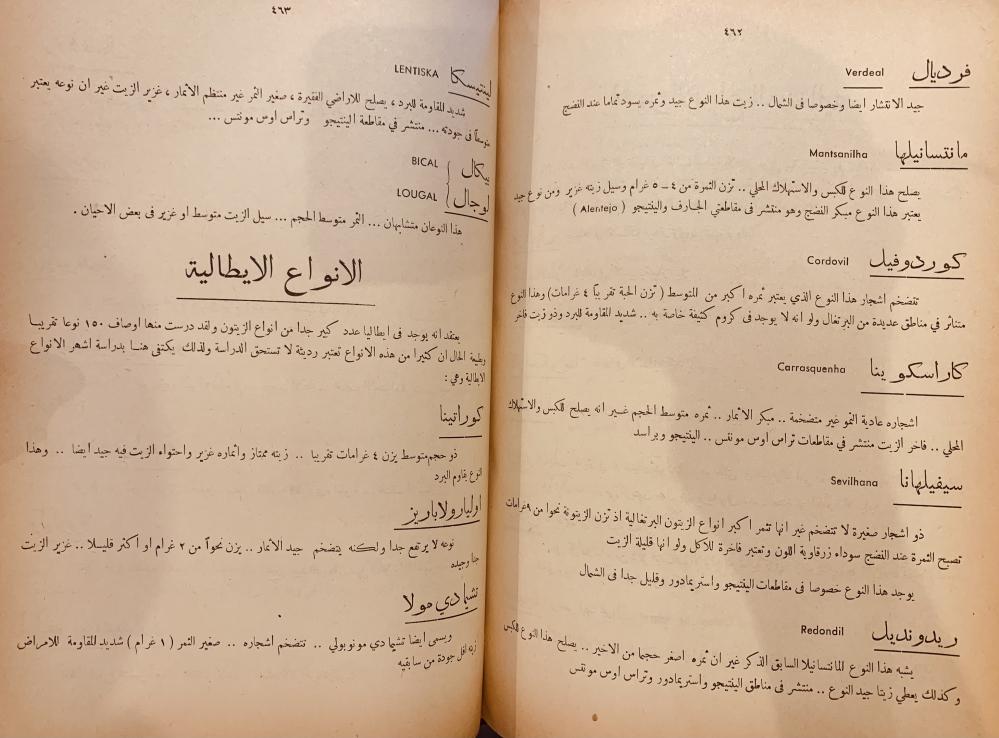 ٤٦٢
فرديال Verdeal
جيد الانتشار ايضا وخصوصا فى الشمال .. زيت هذا النوع جيد وثمره يسود تماما عند النضج
مانتسانيلها Mantsanilha
يصلح هذا النوع للكبس والاستهلاك المحلي .. تزن الثمرة من ٤ – ٥ غرام وسيل زيته غزير ومن نوع جيد
يعتبر هذا النوع مبكر النضج وهو منتشر في مقاطعتي الجارف والينتيجو ( Alentejo )
كوردوفيل Cordovil
تتضخم اشجار هذا النوع الذي يعتبر ثمره اكبر من المتوسط ( تزن الحبة تقريبا ٤ غرامات) وهذا النوع
متناثر في مناطق عديدة من البرتغال ولو انه لا يوجد فى كروم كثيفة خاصة به .. شديد المقاومة للبرد وذو زيت فاخر
كاراسكوينا Carrasquenha
اشجاره عادية النمو غير متضخمة .. مبكر الاثمار .. ثمره متوسط الحجم غير انه يصلح للكبس والاستهلاك
المحلي .. فاخر الزيت منتشر في مقاطعات تراس اوس مونتس .. الينتيجو وبراسد
سيفيلهانا Sevilhana
ذو اشجار صغيرة لا تتضخم غير انها تثمر اكبر انواع الزيتون البرتغالية اذ تزن الزيتونة نحوا من ٩ غرامات
تصبح الثمرة عند النضج سوداء زرقاوية اللون وتعتبر فاخرة للاكل ولو انها قليلة الزيت
يوجد هذا النوع خصوصا فى مقاطعات الينتيجو واستريمادور وقليل جدا فى الشمال
ريدونديل Redondil
يشبه هذا النوع المانتسانيلا السابق الذكر غير ان ثمره اصغر حجما من الاخير .. يصلح هذا النوع للكبس
وكذلك يعطي زيتا جيد النوع .. منتشر فى مناطق الينتيجو واستريمادور وتراس اوس مونتس
٤٦٣
لينتيسكا LENTISKA
شديد المقاومة للبرد ، يصلح للاراضي الفقيرة ، صغير الثمر غير منتظم الاثمار ، غزير الزيت غير ان نوعه يعتبر
متوسطاً فى جودته ... منتشر في مقاطعة الينتيجو وتراس اوس مونتس ...
بيكال BICAL
لوجال LOUGAL
هذا النوعان متشابهان ... الثمر متوسط الحجم ... سيل الزيت متوسط او غزير فى بعض الاحيان .
الانواع الايطالية
يعتقد انه يوجد فى ايطاليا عدد كبير جدا من انواع الزيتون ولقد درست منها اوصاف ١٥٠ نوعا تقريبا
وبطبيعة الحال ان كثيرا من هذه الانواع تعتبر رديئة لا تستحق الدراسة ولذلك يكتفى هنا بدراسة اشهر الانواع
الايطالية وهي :
كوراتينا
ذو حجم متوسط يزن ٤ غرامات تقريبا .. زيته ممتاز واثماره غزير واحتواء الزيت فيه جيد ايضا .. وهذا
النوع يقاوم البرد
اوليارولاباريز
نوعه لا يرتفع جدا ولكنه يتضخم جيد الاثمار .. يزن نحواً من ٢ غرام او اكثر قليلا .. غزير الزيت
جدا وجيده
تشيمادي مولا
ويسمى ايضا تشيما دي مونوبولي .. تتضخم اشجاره .. صغير الثمر ( ١ غرام ) شديد المقاومة للامراض
زيته اقل جودة من سابقيه